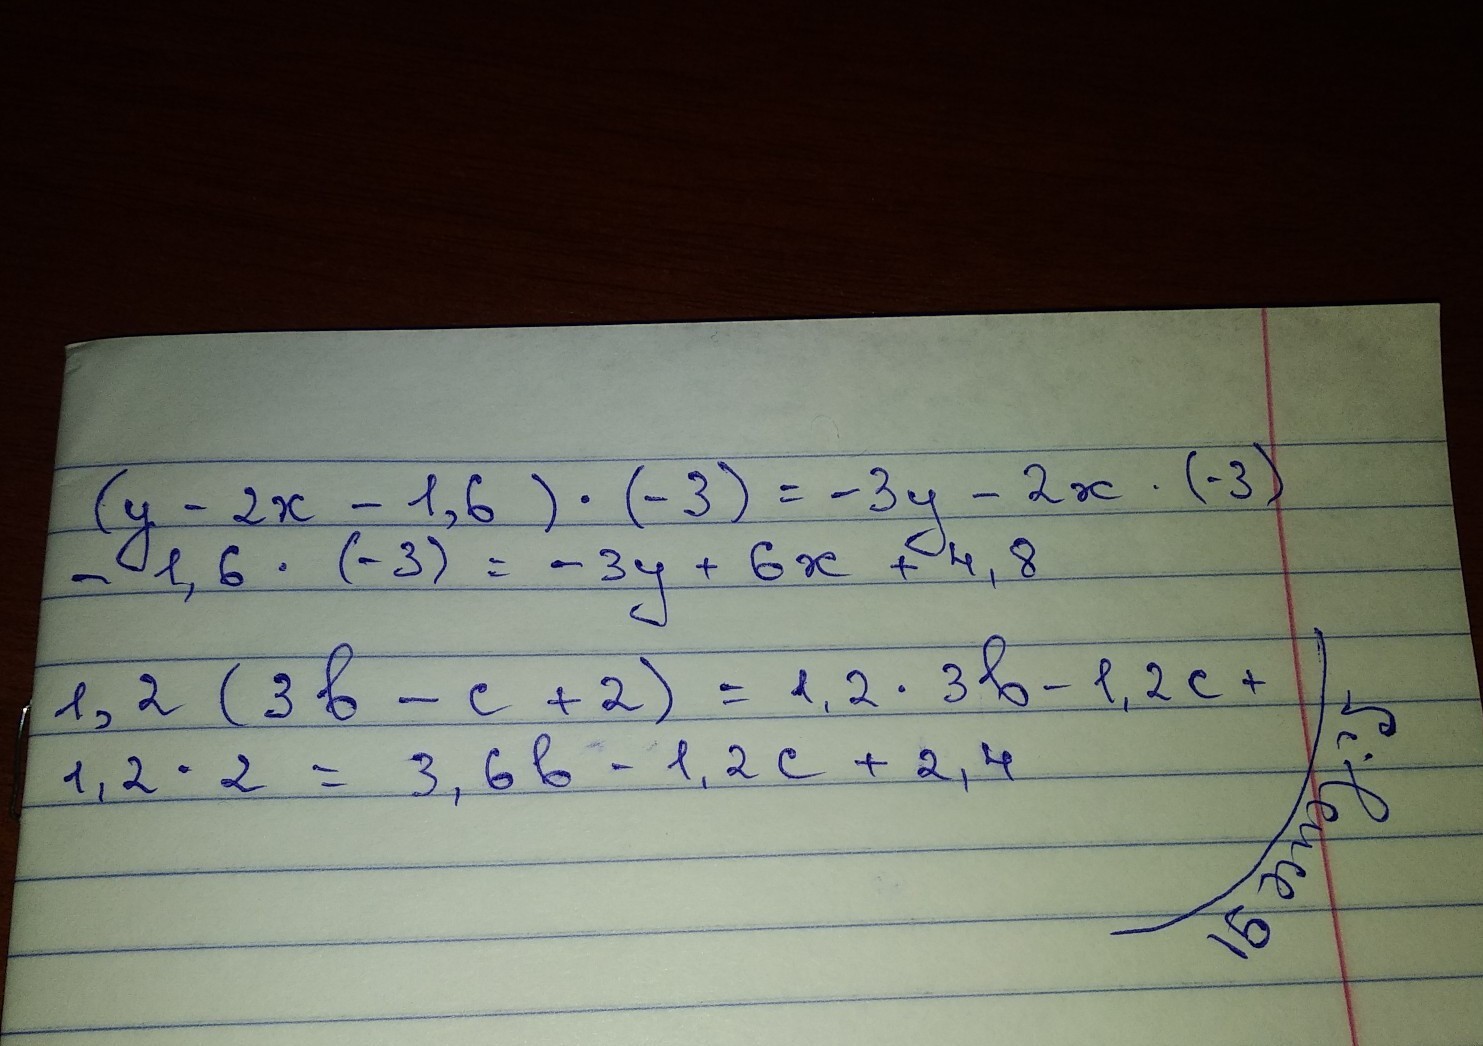 (y - 2x - 1,6) · (-3) = -3y - 2x · (-3)
- 1,6 · (-3) = -3y + 6x + 4,8
1,2 (3b - c + 2) = 1,2 · 3b - 1,2c +
1,2 · 2 = 3,6b - 1,2c + 2,4
15